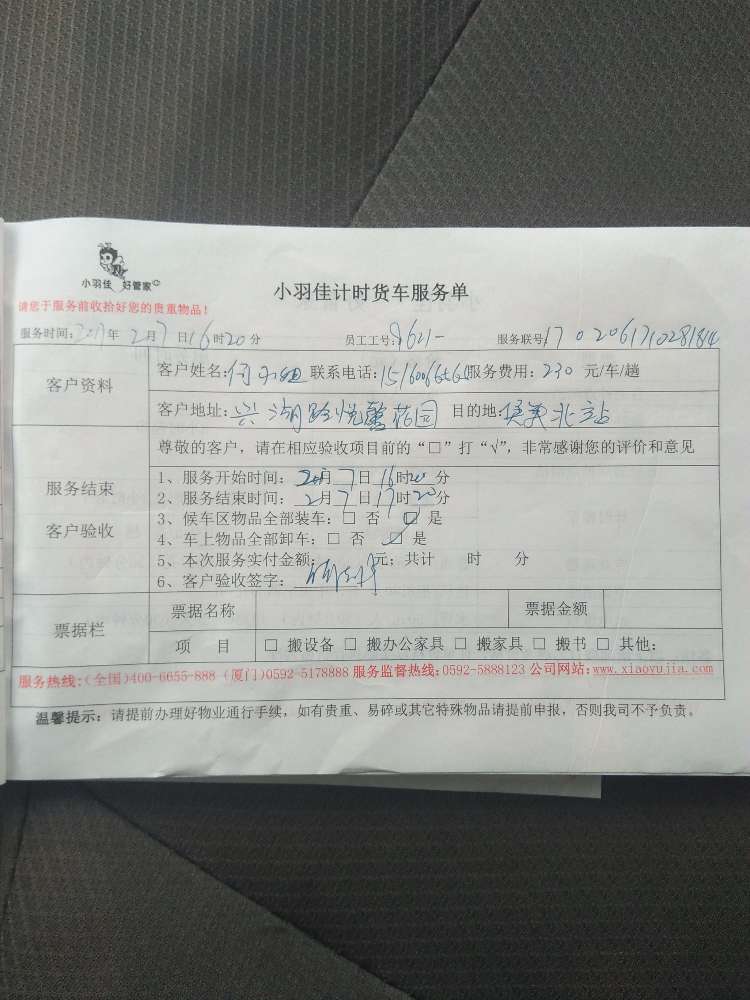 小羽佳 好管家
小羽佳计时货车服务单
请您于服务前收拾好您的贵重物品！
服务时间：2017年2月7日16时20分 员工工号：9621 服务联号170206171028184
客户资料
客户姓名：何小姐 联系电话： 服务费用：230元/车/趟
客户地址：兴湖路悦馨花园 目的地：集美北站
尊敬的客户，请在相应验收项目前的“□”打“√”，非常感谢您的评价和意见
服务结束
客户验收
1、服务开始时间：2月7日16时20分
2、服务结束时间：2月7日17时20分
3、候车区物品全部装车：□ 否 □ 是
4、车上物品全部卸车：□ 否 ☑ 是
5、本次服务实付金额： 元；共计 时 分
6、客户验收签字：
票据栏
票据名称 票据金额
项 目 □ 搬设备 □ 搬办公家具 □ 搬家具 □ 搬书 □ 其他：
服务热线：(全国)400-6655-888 (厦门)0592-5178888 服务监督热线：0592-5888123 公司网站：www.xiaoyujia.com
温馨提示：请提前办理好物业通行手续，如有贵重、易碎或其它特殊物品请提前申报，否则我司不予负责。